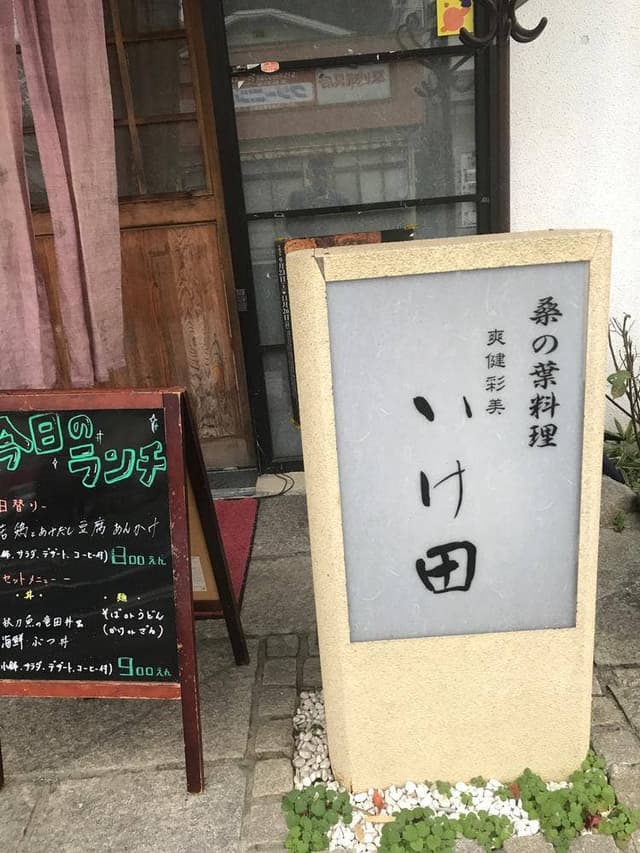 桑の葉料理
爽健彩美
いけ田
今日の
ランチ
日替り
若鶏とあげだし豆腐あんかけ
サラダ、デザート、コーヒー付)800えん
セットメニュー
・丼・
・麺・
秋刀魚の竜田丼
海鮮ぶつ丼
そばorうどん
(かけorざる)
小鉢、サラダ、デザート、コーヒー付)900えん
クリーニング